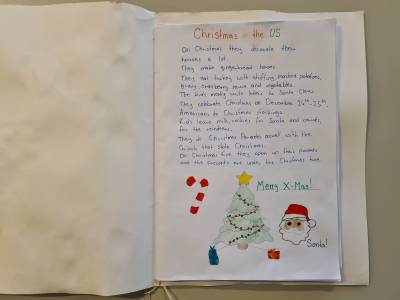 Christmas in the US
On Christmas they decorate their
houses a lot.
They make gingerbread houses.
They eat turkey with stuffing, mashed potatoes,
gravy, cranberry sauce and vegetables.
The kids mostly write letters to Santa Claus
They celebrate Christmas on December 24th-25th.
Americans do Christmas stockings.
Kids leave milk, cookies for Santa and carrots
for the reindeers.
They do Christmas Parades with the
Grinch that stole Christmas.
On Christmas Eve they open up their presents
and the presents are under the Christmas tree.
Merry X-Mas!
Santa!